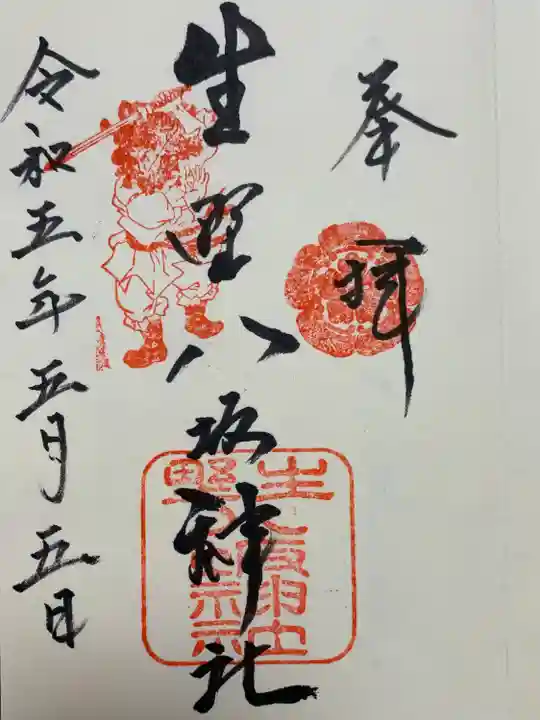 奉拝
生野八坂神社
令和五年五月五日
生野
八坂神社